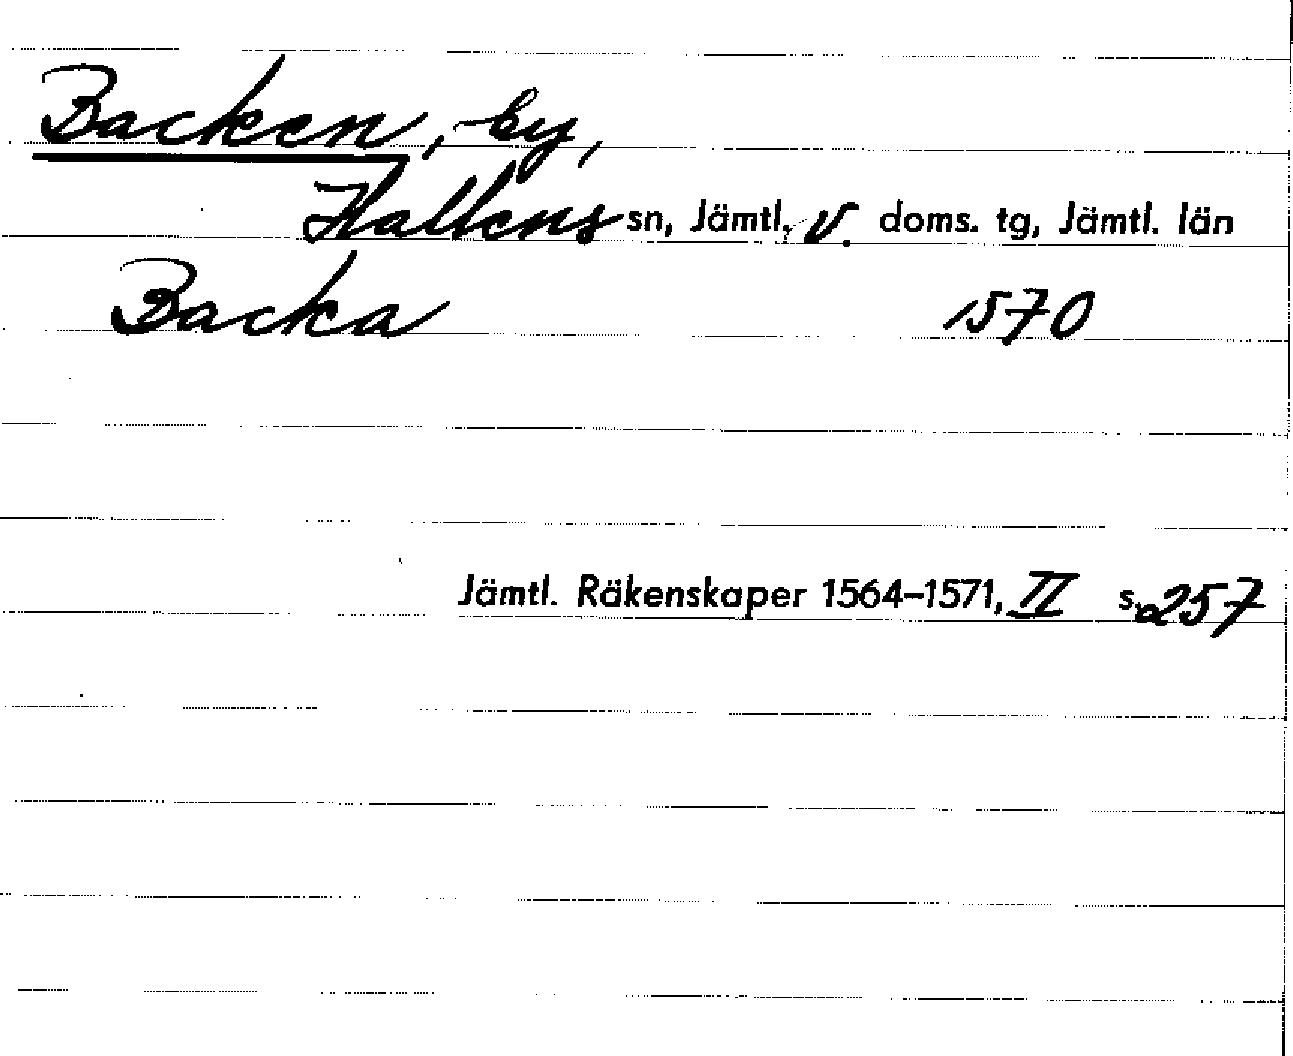 Backen, by,
Hallens sn, Jämtl, v. doms. tg, Jämtl. län
Backa 1570
Jämtl. Räkenskaper 1564–1571, II s. 257